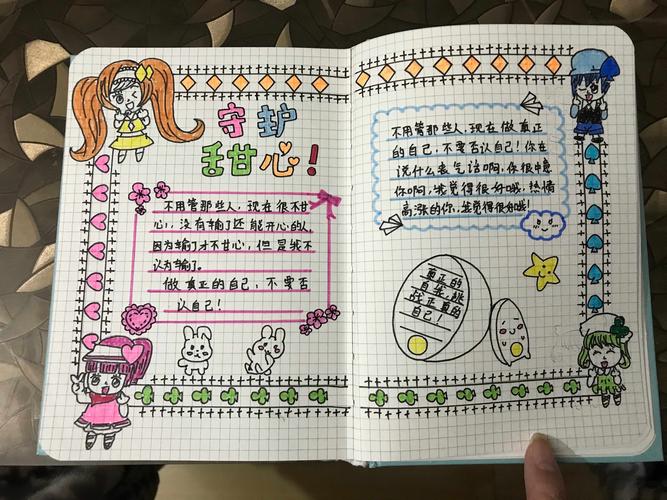 守护
甜心！
不用管那些人，现在很不甘
心，没有输了还能开心的人，
因为输了才不甘心，但是我不
认为输了。
做真正的自己，不要否
认自己！
不用管那些人，现在做真正
的自己，不要否认自己！你在
说什么丧气话啊，你很中意
你啊，我觉得很好哦，热情
高涨的你，我觉得很好哦！
真正的
自我，
正直的
自己！